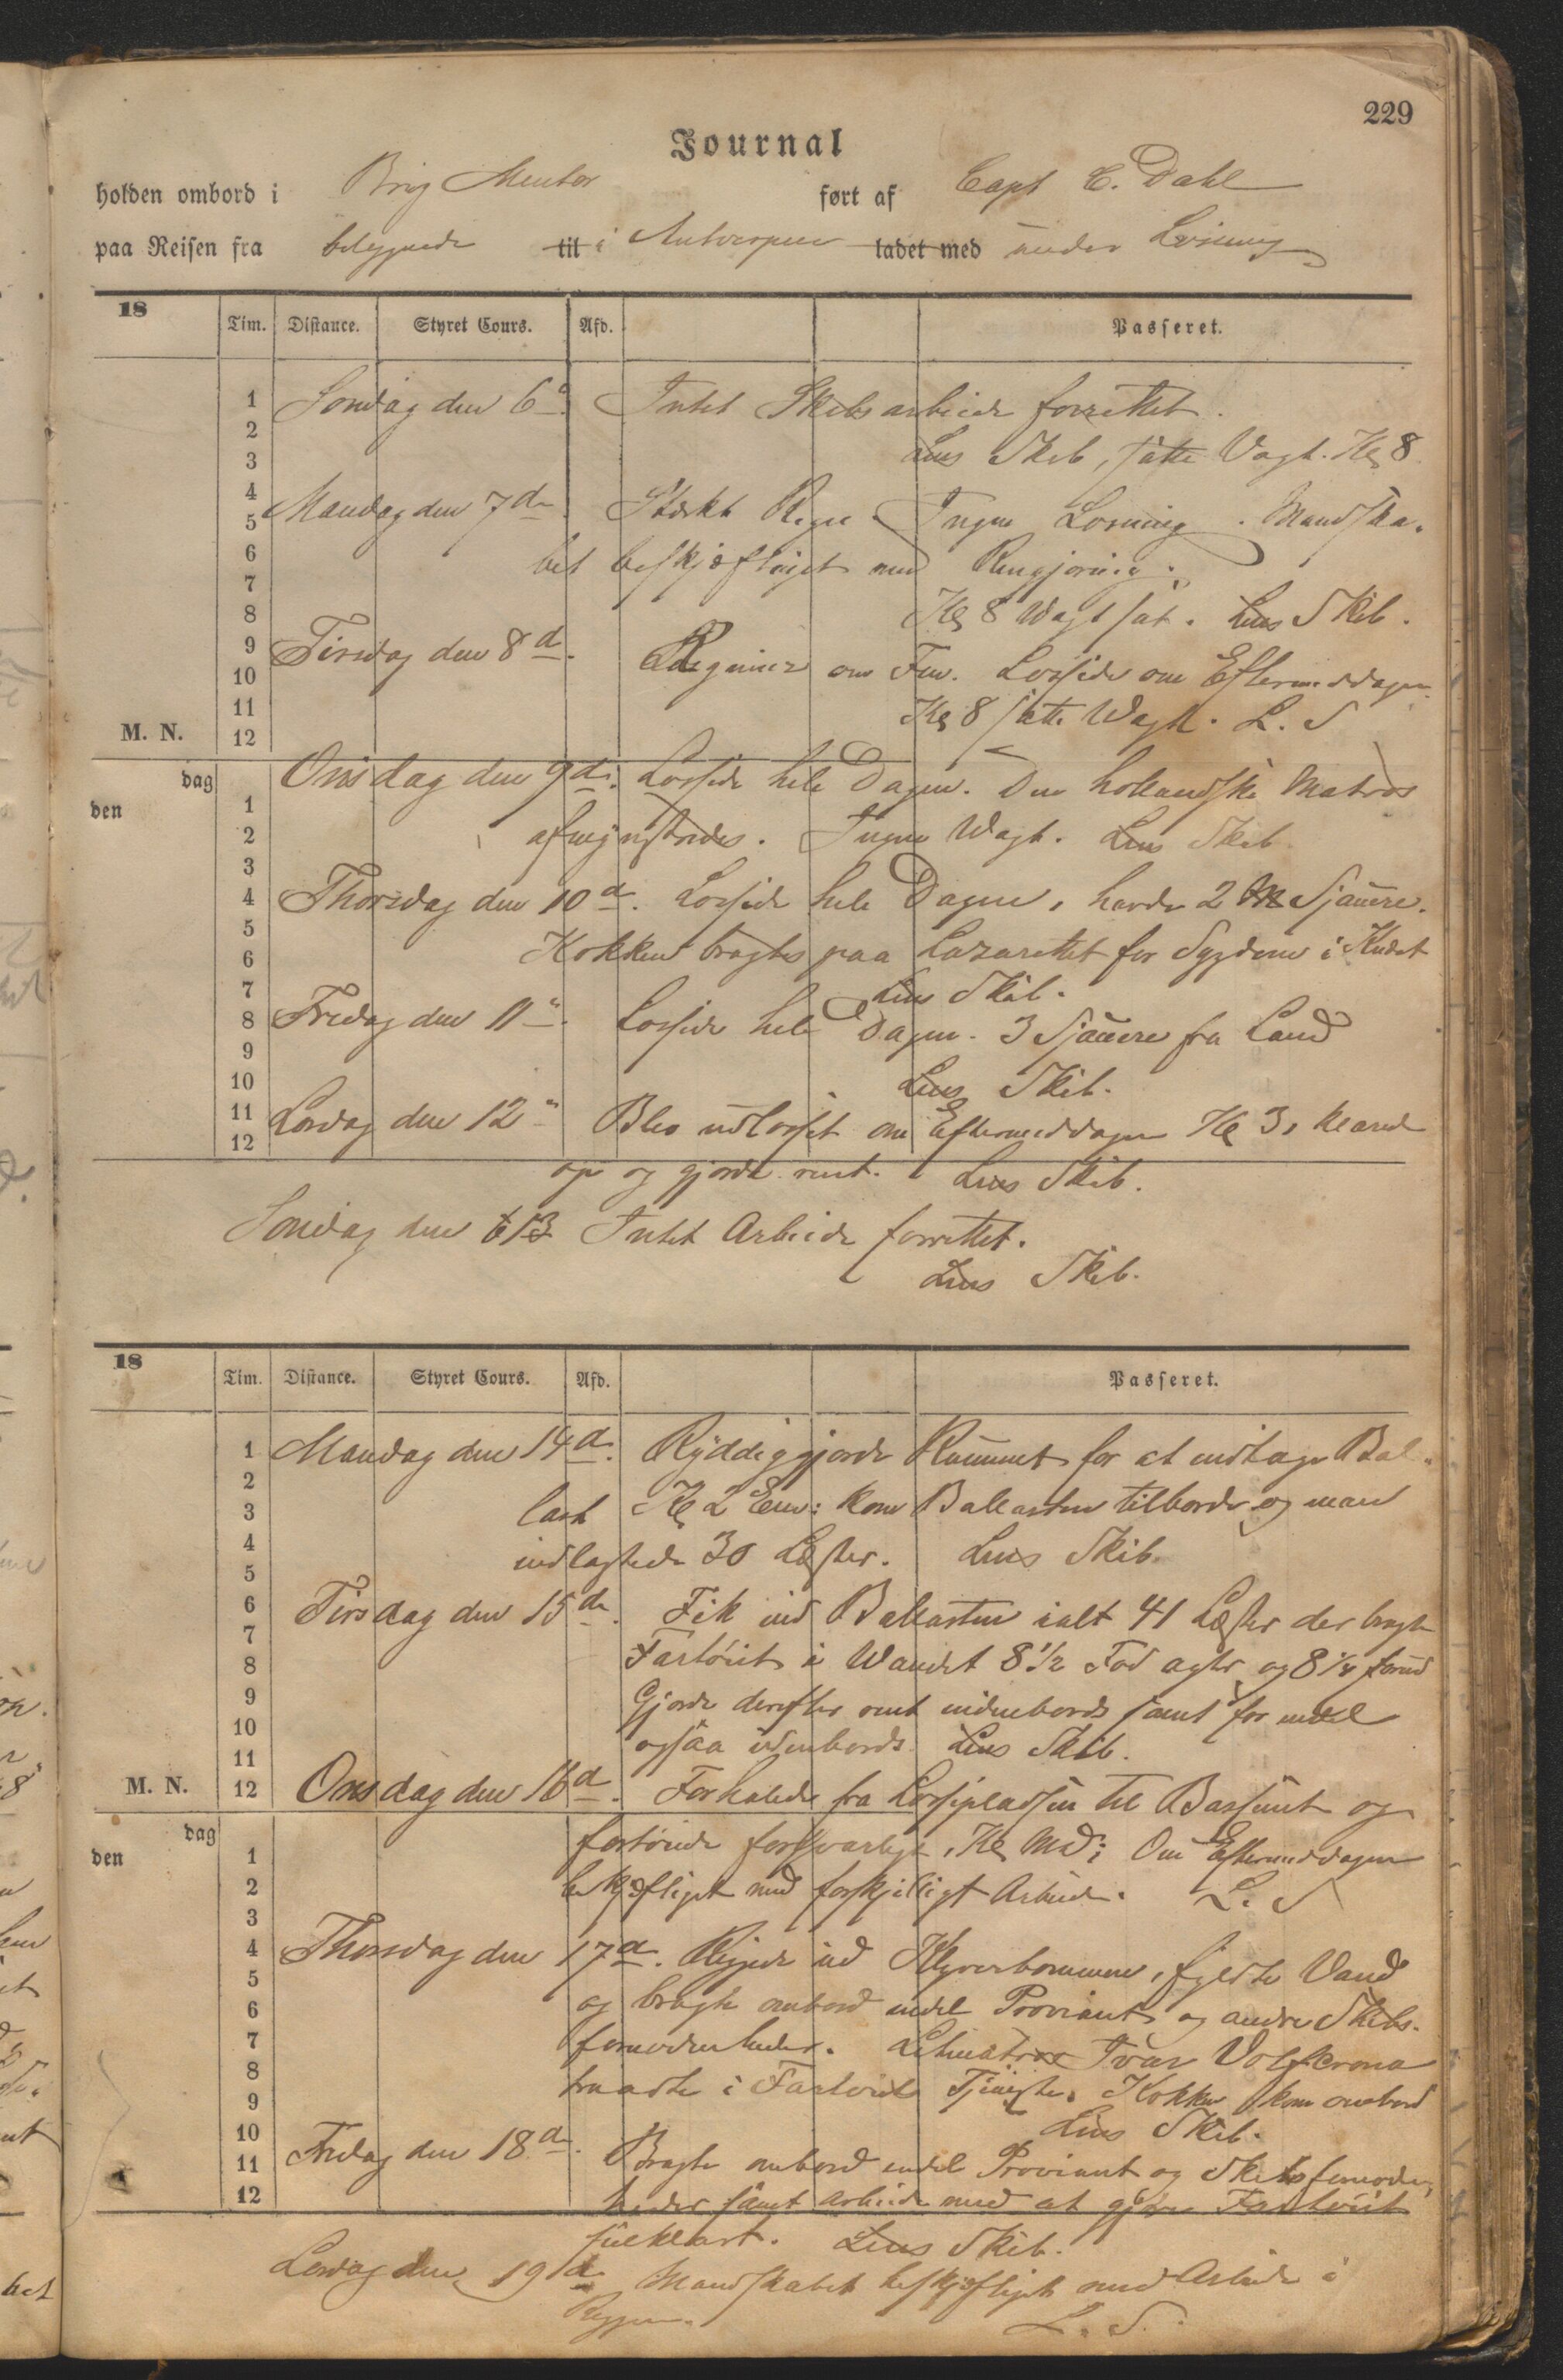 229
Journal
holden ombord i Brig Mentor ført af Capt C. Dahl
paa Reisen fra beliggende til i Antverpen ladet med under Losning
18 Tim. Distance. Styret Cours. Afd. Passeret.
1 Søndag den 6te Intet Skibsarbeide forrettet.
2
3 Læns Skib, satte Vagt. Kl 8
4 Mandag den 7de Stærkt Regn Ingen Losning. Mandska-
5
6 bet beskjæftiget med Rengjøring.
7
8 Kl 8 Vagt sat. Læns Skib.
9 Tirsdag den 8de Regnveir om Fm. Lossede om Eftermiddagen
10
11 Kl 8 satte Vagt. L. S
M. N. 12
dag Onsdag den 9de Lossede hele Dagen. Den hollandske Matros
den 1
2 afmynstredes. Ingen Vagt. Læns Skib
3
4 Thorsdag den 10de. Lossede hele Dagen, havde 2 Sjauere.
5
6 Kokken bragtes paa Lazarettet for Sygdom i Knæet
7 Læns Skib.
8 Fredag den 11te Lossede hele Dagen. 3 Sjauere fra Land
9
10 Læns Skib.
11 Lørdag den 12te Blev udlosset om Eftermiddagen Kl 3, klarede
12
op og gjorde rent. Læns Skib.
Søndag den 13 Intet Arbeide forrettet.
Læns Skib.
18 Tim. Distance. Styret Cours. Afd. Passeret.
1 Mandag den 14de. Ryddiggjorde Rummet for at indtage Bal-
2
3 last Kl 2 Em: kom Ballasten tilborde og man
4 indlastede 30 Læster. Læns Skib.
5
6 Tirsdag den 15de. Fik ind Ballasten ialt 41 Læster der bragte
7
8 Fartøiet i Vandet 8 1/2 Fod agter og 8 1/4 forud
9 Gjorde derefter rent indenbords samt for endel
10
11 ogsaa udenbords. Læns Skib.
M. N. 12 Onsdag den 16de. Forhalede fra Lossepladsen til Bassinet og
dag
den 1 fortøiede forsvarligt, Kl Md; Om Eftermiddagen
2 beskjæftiget med forskjelligt Arbeide. L. S
3
4 Thorsdag den 17de. Rejede ud Klyverbommen, fyldte Vand
5
6 og bragte ombord endel Proviant og andre Skibs-
7 fornødenheder. Letmatros Ivar Volf
8 traadte i Fartøiets Tjeneste. Kokken kom ombord
9
10 Læns Skib.
11 Fredag den 18de. Bragte ombord endel Proviant og Skibsfornøden-
12 heder samt arbeide med at gjøre Fartøiet
seilklart. Læns Skib.
Lørdag den 19de Mandskabet beskjæftiget med Arbeide i
Rejgen. L. S.